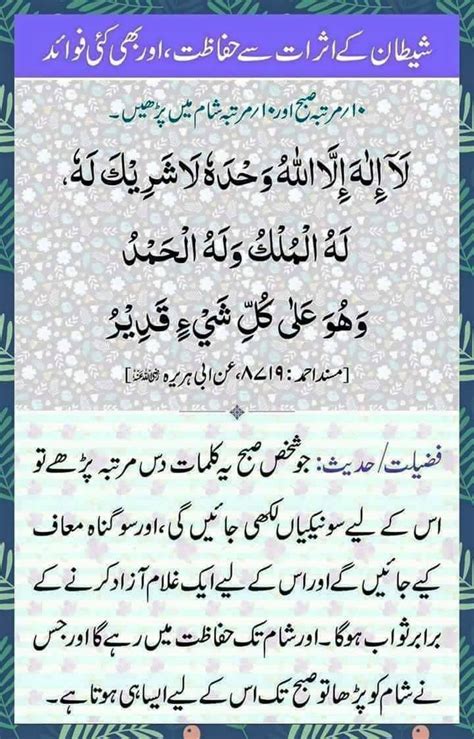 شیطان کے اثرات سے حفاظت، اور بھی کئی فوائد
۱۰/مرتبہ صبح اور ۱۰/مرتبہ شام میں پڑھیں۔
لَآ إِلٰهَ إِلَّا اللّٰهُ وَحْدَهٗ لَا شَرِيْكَ لَهٗ،
لَهُ الْمُلْكُ وَلَهُ الْحَمْدُ
وَهُوَ عَلٰى كُلِّ شَيْءٍ قَدِيْرُ
[مسند احمد: ۸۷۱۹، عن ابی ہریرہ رضی اللہ عنہ]
فضیلت/حدیث: جو شخص صبح یہ کلمات دس مرتبہ پڑھے تو
اس کے لیے سو نیکیاں لکھی جائیں گی، اور سو گناہ معاف
کیے جائیں گے اور اس کے لیے ایک غلام آزاد کرنے کے
برابر ثواب ہوگا۔ اور شام تک حفاظت میں رہے گا اور جس
نے شام کو پڑھا تو صبح تک اس کے لیے ایسا ہی ہوتا ہے۔